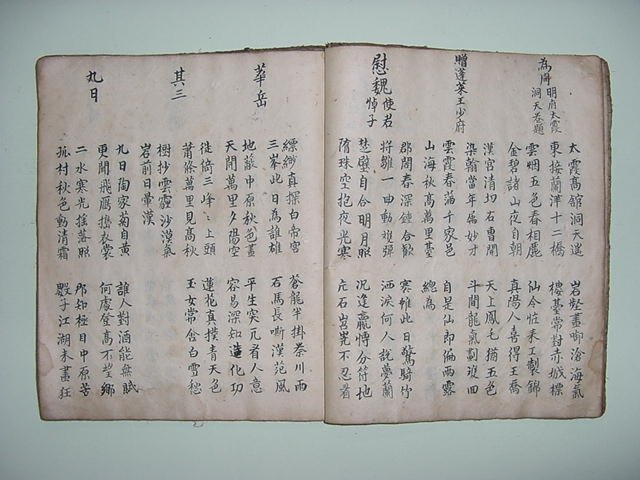 為周明府太霞
洞天卷題
太霞高館洞天遙 岩壑畫啣滄海氣
東接蘭洋十二橋 樓臺常對赤城標
雲烟五色春相麗 仙令恠來工製錦
金碧諸山夜自朝 真陽人喜得王喬
贈蓬萊王少府
漢官清切石曹開 天上鳳毛猶五色
染翰當年屬妙才 斗間龍氣劃 四
雲霞春蕩千家邑 自是仙郎偏雨露
山海秋高萬里臺 總為
慰魏使君悼子
郡閣春深鍾合歡 寒帷此日驚騎竹
將雛一弄動 彈 洒淚何人說夢蘭
楚璧自合明月照 況逢羸博分符地
隋珠空抱夜光寒 片石 不忍看
華岳
縹緲真探白帝宮 蒼龍半掛秦川雨
三峯此日為誰雄 石馬長嘶漢苑風
地敵中原秋色盡 平生突兀看人意
天開萬里夕陽空 容易深知造化功
其三
徙倚三峰ミ上頭 蓮花真撲青天色
蕭條萬里見高秋 玉女常含白雪愁
樹抄雲霾沙漠氣
岩前日暈漢
九日
九日陶家菊自黃 誰人對酒能無賦
更聞飛鴈搗衣裳 何處登高不望鄉
二水寒光搖落照 那知極目中原苦
孤村秋色動清霜 子江湖未盡狂